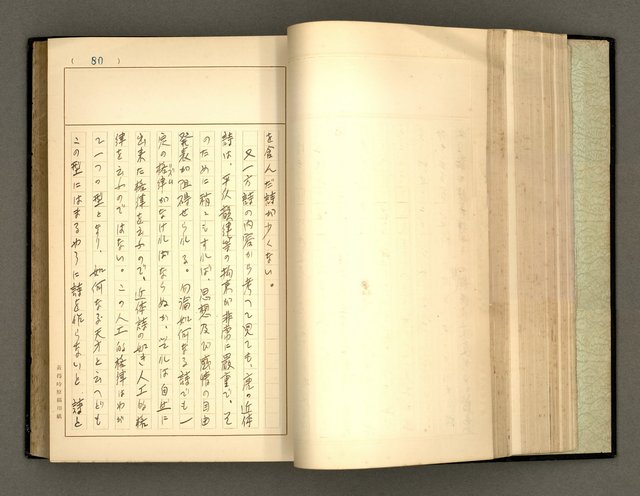 ( 80 )
を含んだ詩が少くない。
又一方詩の内容から考へて見ても、唐の近体
詩は、平仄韻律等の拘束が非常に嚴重で、そ
のために稍ともすれば、思想及び感情の自由
発表が阻碍せられる。勿論如何なる詩でも一
定の格律がなければならぬが、それは自然に
出来た格律を云ふので、近体詩の如き人工的格
律を云ふのではない。この人工的格律はわが
て一つの型となり、如何なる天才と云へども
この型にはまるやうに詩を作らないと、詩と
黃得時原稿用紙